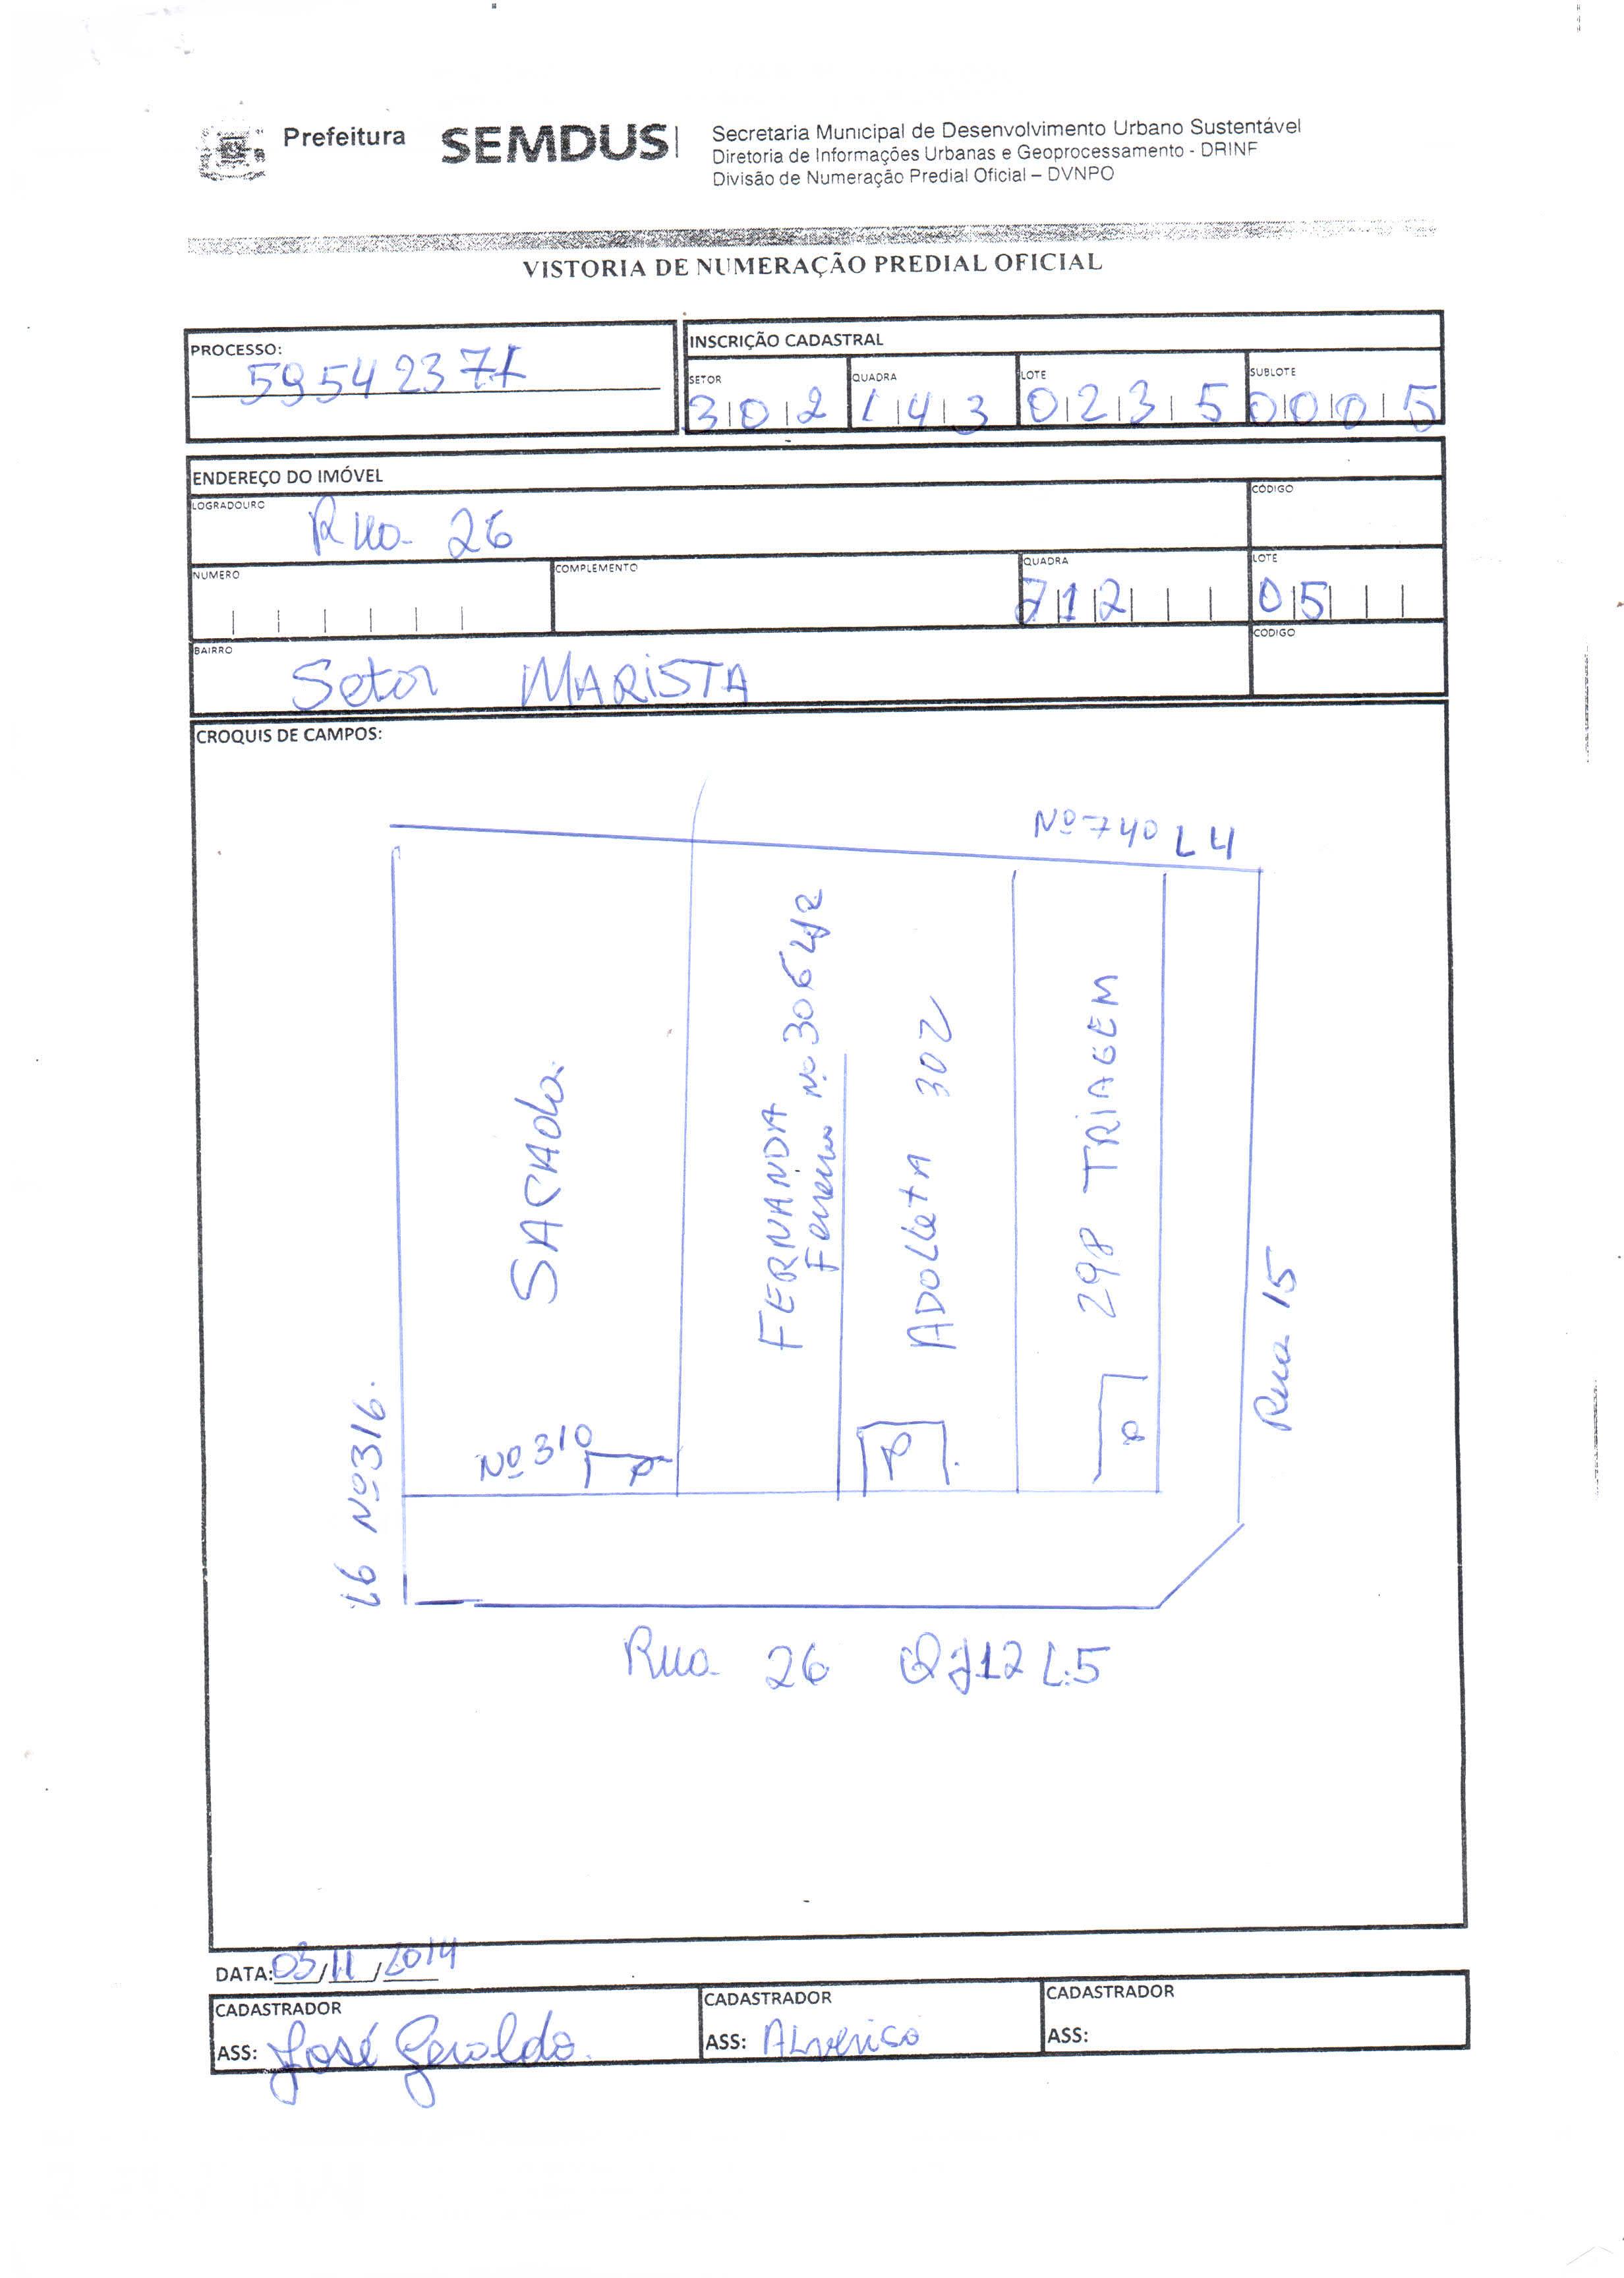 Prefeitura SEMDUS
Secretaria Municipal de Desenvolvimento Urbano Sustentável
Diretoria de Informações Urbanas e Geoprocessamento - DRINF
Divisão de Numeração Predial Oficial – DVNPO
VISTORIA DE NUMERAÇÃO PREDIAL OFICIAL
PROCESSO:
59542371
INSCRIÇÃO CADASTRAL
SETOR QUADRA LOTE SUBLOTE
302 143 0235 0005
ENDEREÇO DO IMÓVEL
LOGRADOURO CÓDIGO
Rua 26
NUMERO COMPLEMENTO QUADRA LOTE
J12 05
BAIRRO CODIGO
Setor MARISTA
CROQUIS DE CAMPOS:
Nº 740 L4
L6 Nº 316.
Nº 310
FERNANDA
Nº 306
ADOLLETA 302
298 TRIAGEM
Rua 15
Rua 26 QJ12 L.5
DATA: 03/11/2014
CADASTRADOR
ASS: José Geraldo.
CADASTRADOR
ASS:
CADASTRADOR
ASS: